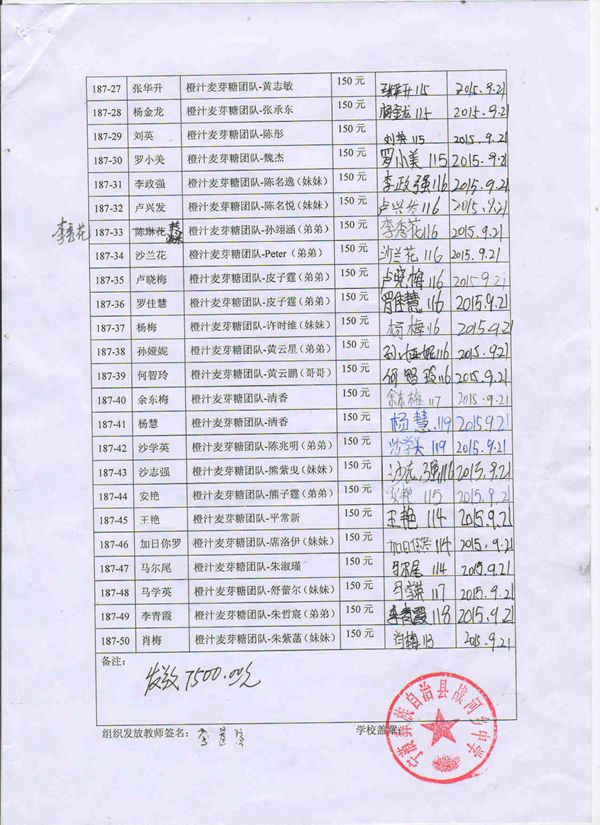 187-27 张华升 橙汁麦芽糖团队-黄志敏 150 元 张华升 115 2015.9.21
187-28 杨金龙 橙汁麦芽糖团队-张承东 150 元 杨金龙 115 2015.9.21
187-29 刘英 橙汁麦芽糖团队-陈彤 150 元 刘英 115 2015.9.21
187-30 罗小美 橙汁麦芽糖团队-魏杰 150 元 罗小美 115 2015.9.21
187-31 李政强 橙汁麦芽糖团队-陈名逸（妹妹） 150 元 李政强 116 2015.9.21
187-32 卢兴发 橙汁麦芽糖团队-陈名悦（妹妹） 150 元 卢兴发 116 2015.9.21
李秀花 187-33 陈琳花 橙汁麦芽糖团队-孙翊涵（弟弟） 150 元 李秀花 116 2015.9.21
187-34 沙兰花 橙汁麦芽糖团队-Peter（弟弟） 150 元 沙兰花 116 2015.9.21
187-35 卢晓梅 橙汁麦芽糖团队-皮子霆（弟弟） 150 元 卢晓梅 116 2015.9.21
187-36 罗佳慧 橙汁麦芽糖团队-皮子霆（弟弟） 150 元 罗佳慧 116 2015.9.21
187-37 杨梅 橙汁麦芽糖团队-许时维（妹妹） 150 元 杨梅 116 2015.9.21
187-38 孙娅妮 橙汁麦芽糖团队-黄云星（弟弟） 150 元 孙娅妮 116 2015.9.21
187-39 何智玲 橙汁麦芽糖团队-黄云鹏（哥哥） 150 元 何智玲 116 2015.9.21
187-40 余东梅 橙汁麦芽糖团队-清香 150 元 余东梅 117 2015.9.21
187-41 杨慧 橙汁麦芽糖团队-清香 150 元 杨慧 119 2015.9.21
187-42 沙学英 橙汁麦芽糖团队-陈兆明（弟弟） 150 元 沙学英 119 2015.9.21
187-43 沙志强 橙汁麦芽糖团队-熊紫曳（妹妹） 150 元 沙志强 116 2015.9.21
187-44 安艳 橙汁麦芽糖团队-熊子霆（弟弟） 150 元 安艳 115 2015.9.21
187-45 王艳 橙汁麦芽糖团队-平常新 150 元 王艳 114 2015.9.21
187-46 加日你罗 橙汁麦芽糖团队-席洛伊（妹妹） 150 元 加日你罗 114 2015.9.21
187-47 马尔尾 橙汁麦芽糖团队-朱淑瑾 150 元 马尔尾 114 2015.9.21
187-48 马学英 橙汁麦芽糖团队-舒蕾尔（妹妹） 150 元 马学英 117 2015.9.21
187-49 李青霞 橙汁麦芽糖团队-朱哲宸（弟弟） 150 元 李青霞 118 2015.9.21
187-50 肖梅 橙汁麦芽糖团队-朱紫菡（妹妹） 150 元 肖梅 113 2015.9.21
备注：
发放 7500.00元
组织发放教师签名： 学校盖章：
宁蒗彝族自治县战河乡中学